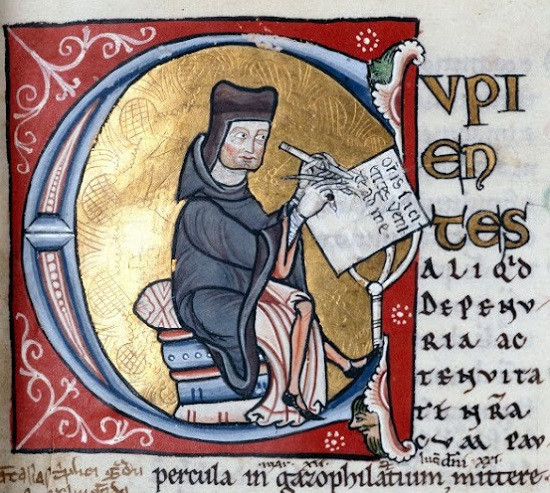 CVPI
EN
TES
ALIQ͛D
DEPENV
RIA AC
TENVITA
TE NR̃A
CVM PAV
percula in gazophilatium mittere
veni
te ad me